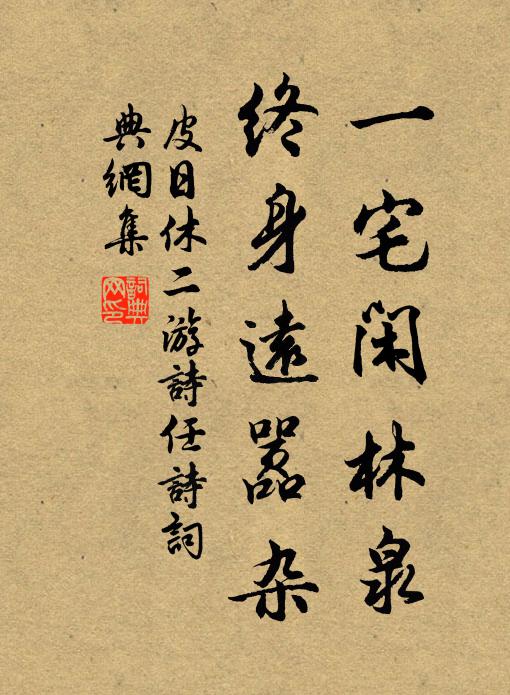 一宅閑林泉
終身遠嚣杂
皮日休二游詩任詩詞
典網集
詞典网印